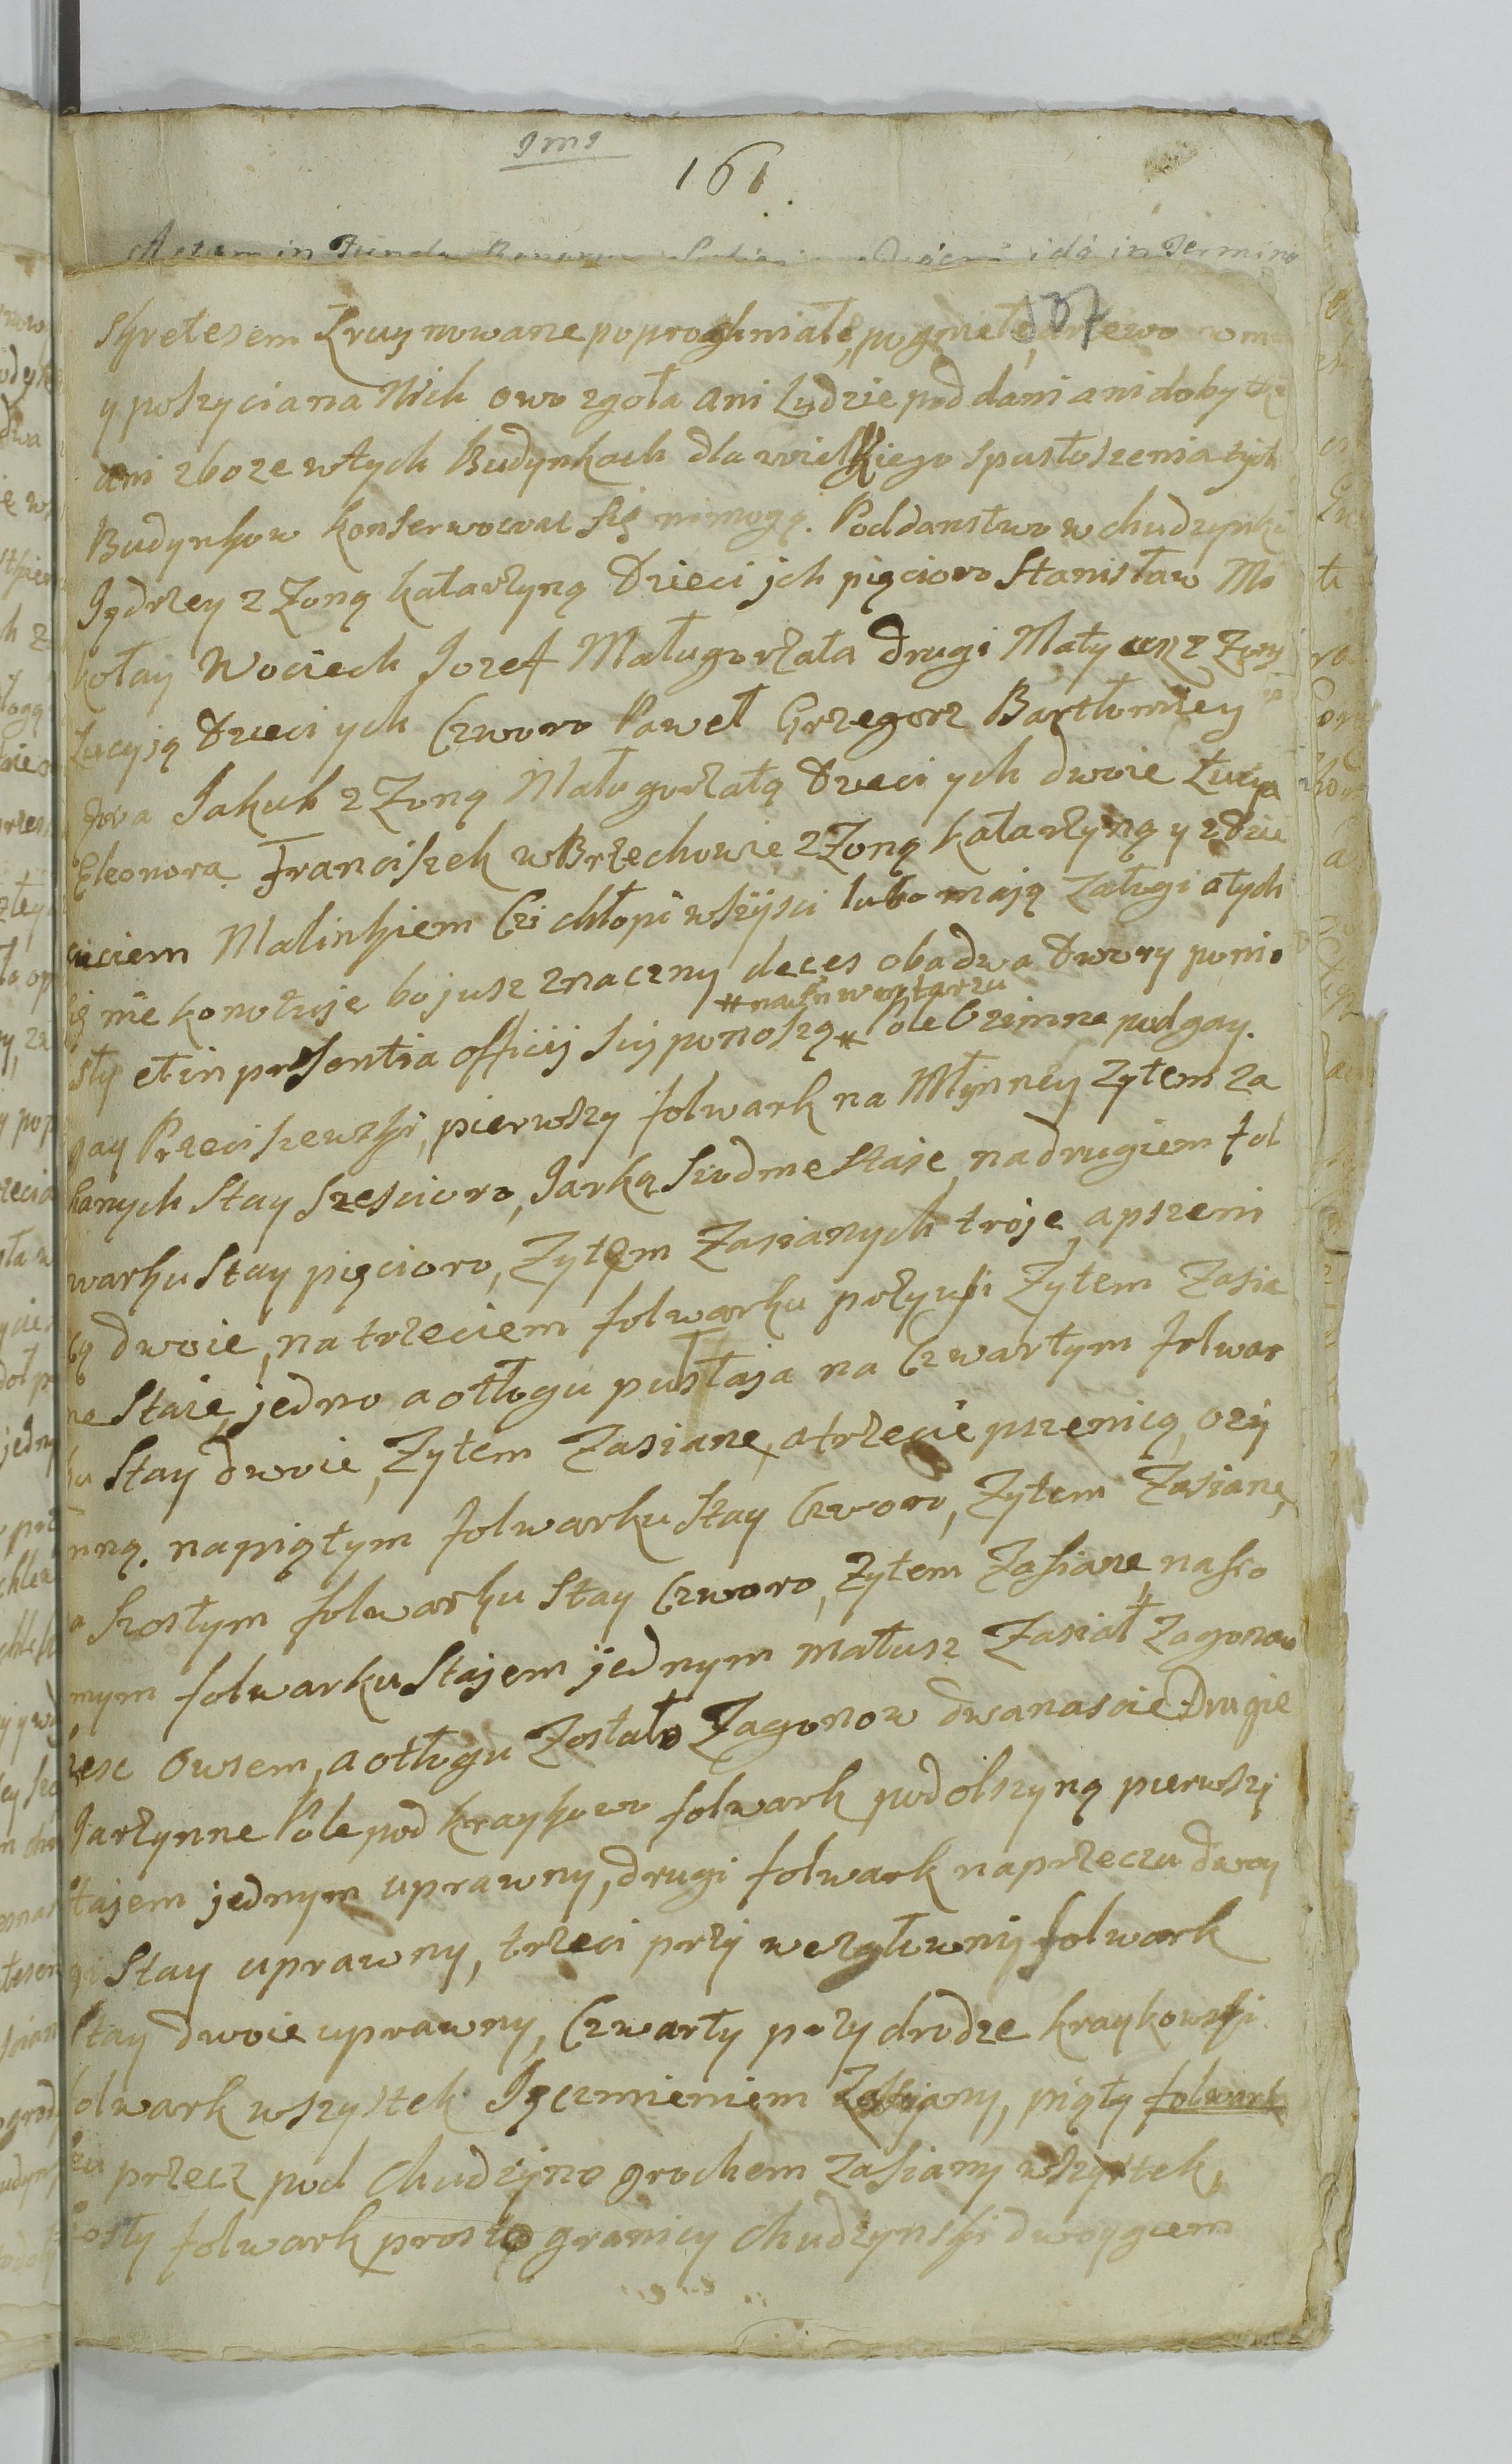 161
Actum in Fundo in Termino
137
skretesem Zruynowane poprochniałe, pogniełe, drzewo
y poszycia na Nich owo zgoła ani Ludzie poddani ani dobytki
ani zboze wtych Budynkach dla wielkiego spustoszenia tych
Budynkow konserwowac się nimogą. Poddanstwo w chudzynku
Jędrzey z Zoną katarzyną Dzieci jch pięcioro Stanisław Mi
kołay Wociech Jozef Maługorzata drugi Matyasz z Zoną
Lucyją Dzieci ych Czworo Paweł Grzegorz Bartłomiey
Ewa Jakub z Zoną Maługorzatą Dzieci ych dwoie Łucya
Eleonora Franciszek w Brzechowie z Zoną katarzyną y z Dzie
cięciem Malinkiem Ci chłopi wszÿsci lubo mają Załugi atych
się nie konotuje bo jusz znaczny deces obadwa Dwory ponio
#na Inwentarzu
sły et in presentia officij sui ponoszą # Pole Ozimne podgay.
gay Przeciszewski, pierwszy folwark na Młynney Zytem za
sianych Stay Szescioro, Jarką Siodme Staje, nadrugiem fol
warku Stay pięcioro, Zytem Zasianych troje, apszeni
cą dwoie, na trzeciem folwarku Zytem Zasia
ne Staie jedno aotłogu pustaja na Czwartym folwar
ku Stay dwoie, Zytem Zasiane, atrzecie pszenicą, ozÿ
nną. napiątym folwarku Stay Czworo, Zytem Zasiane,
a Szostym folwarku Stay Czworo, Zytem Zasiane, nasio
mym folwarku Stajem jednym małusz Zasiał Zagonow
szesc Owsem, aotłogu Zostało Zagonow dwanascie Drugie
Jarzynne Pole pod kraykowo folwark podolszyną pierwszÿ
stajem jednym uprawny, drugi folwark naprzeczu dwoy
gi Stay uprawny, trzeci przÿ wezgłownÿ folwark
Stay dwoie uprawny, Czwarty przy drodze kraykowski
folwark wszystek Jęczmieniem Zasiany, piąty folwark
przecz pod Chudzÿno grochem zasiany wszystek,
szosty folwark prosto granicy Chudzynski dwoygiem